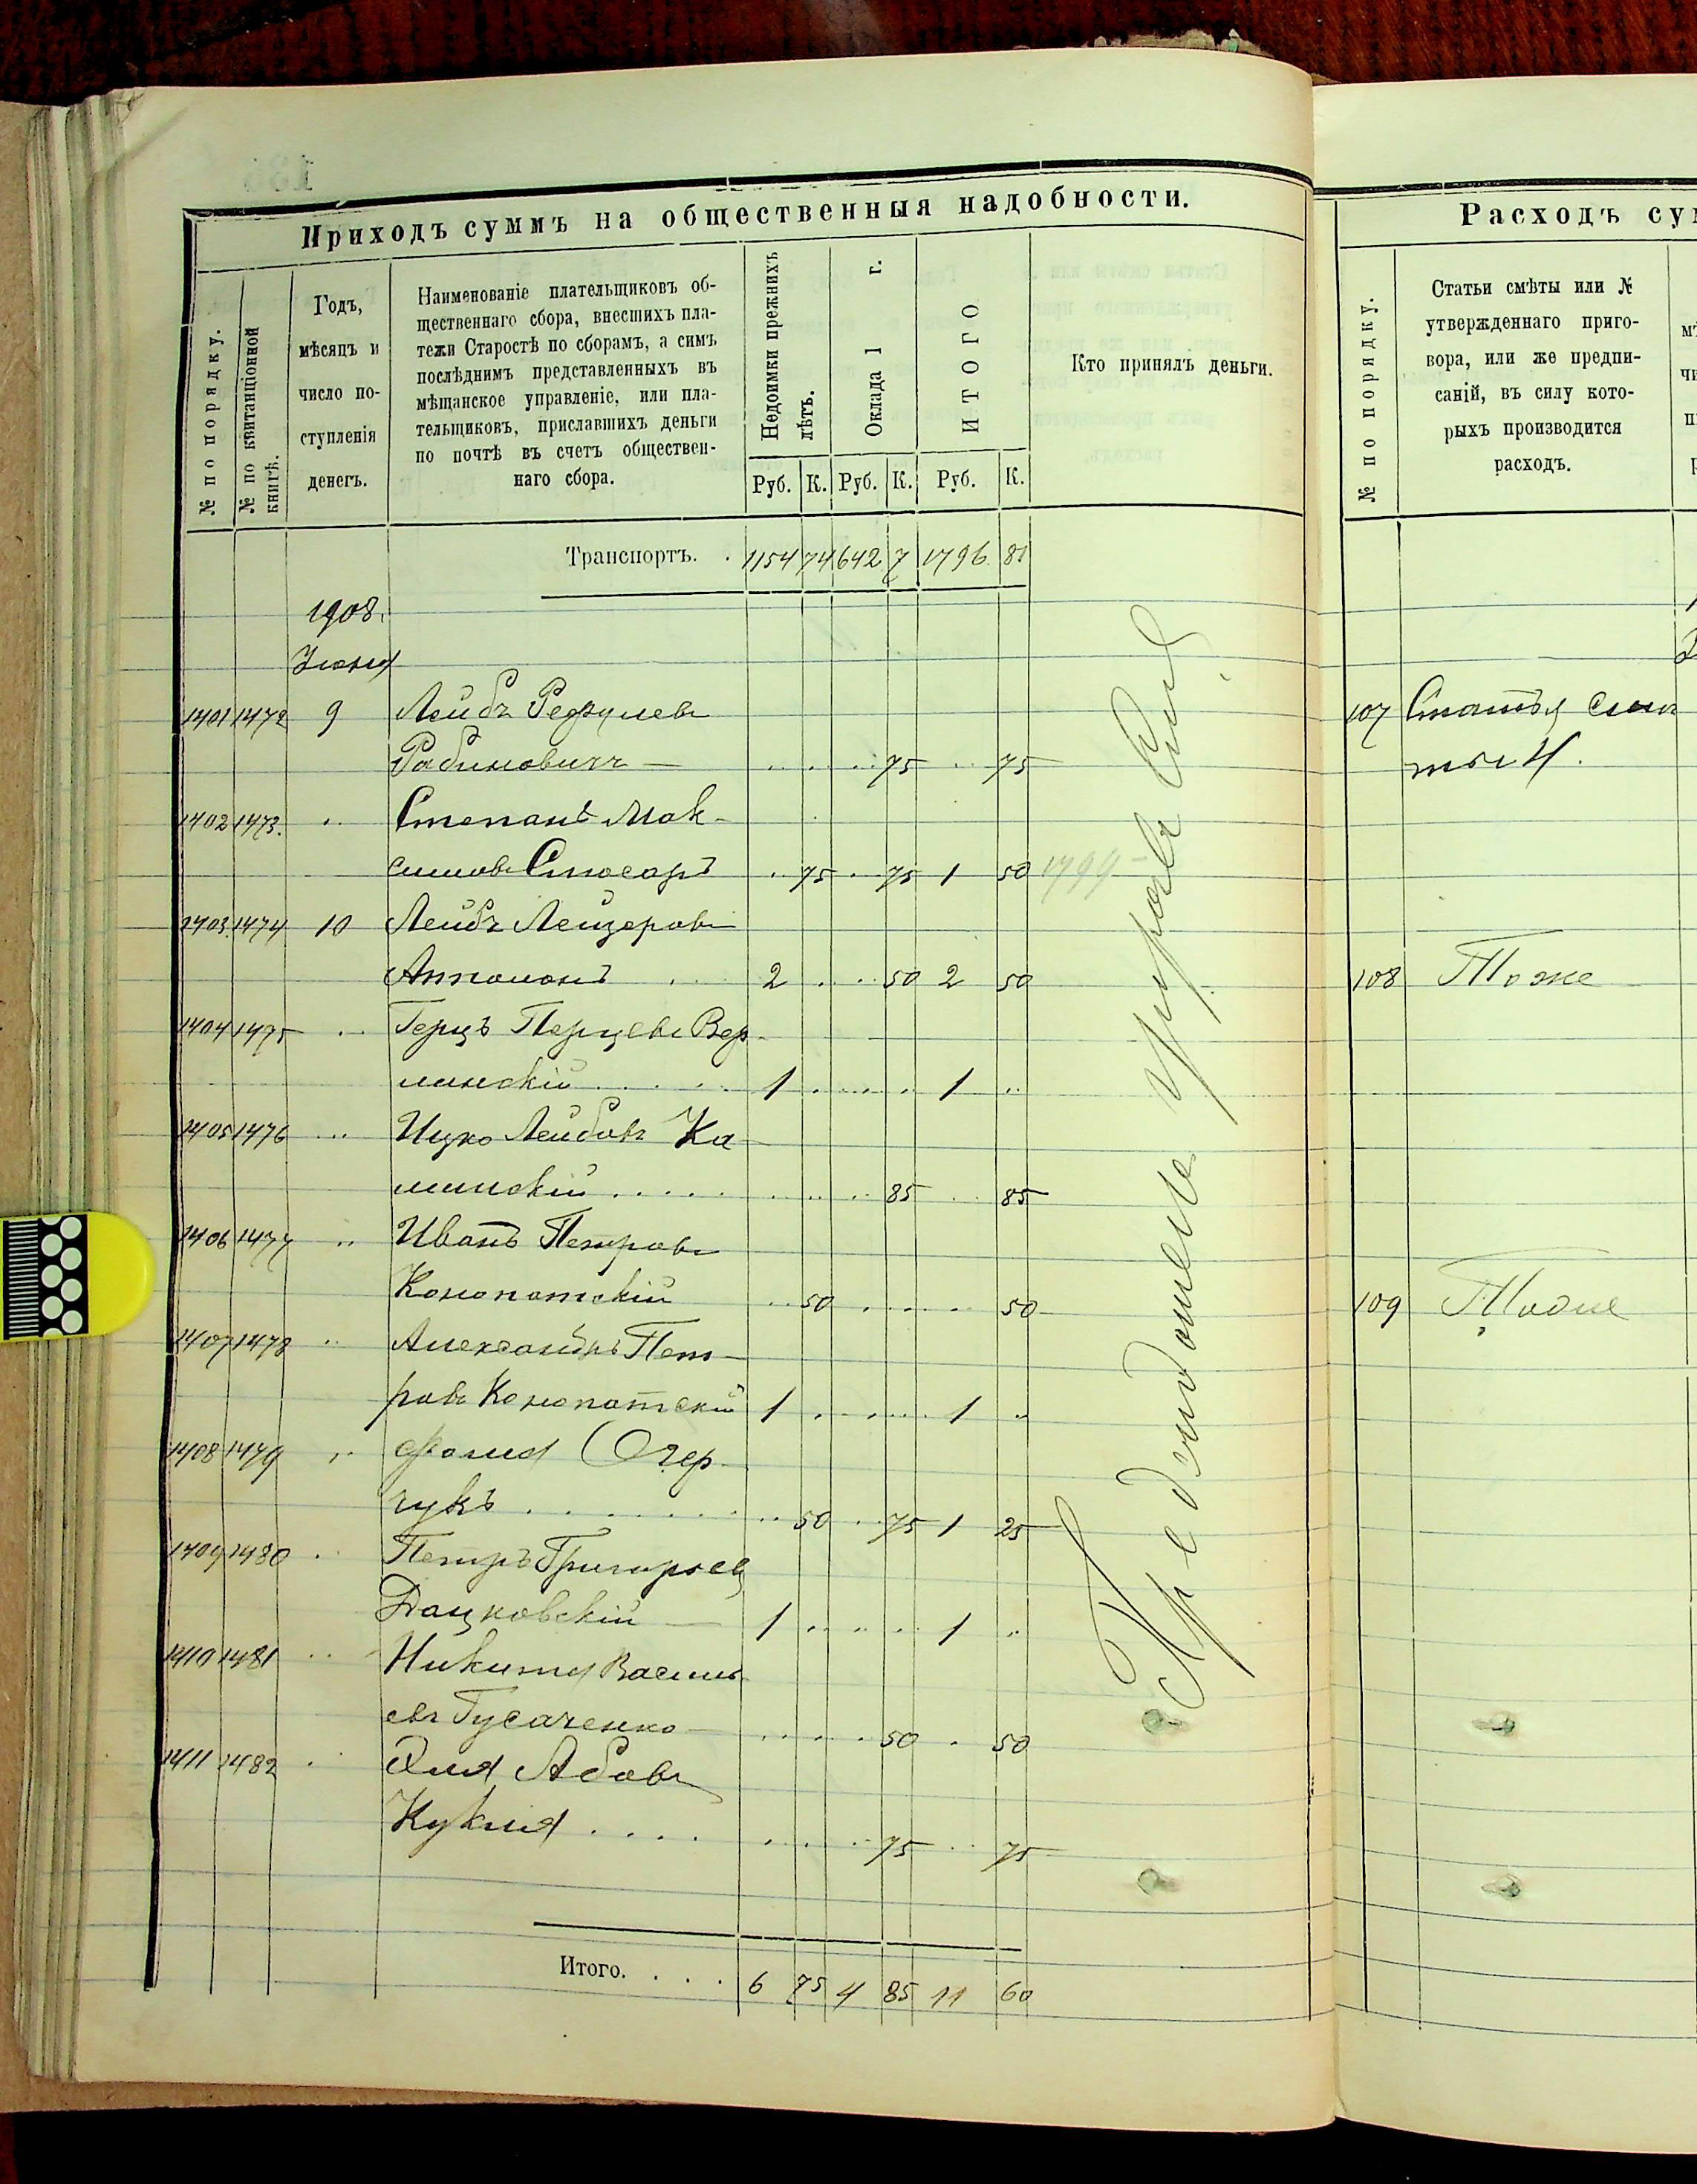 Приходъ суммъ на общественныя надобности.
№ по порядку.
№ по квитанціонной книгѣ.
Годъ,
мѣсяцъ и
число по-
ступленія
денегъ.
Наименованіе плательщиковъ об-
щественнаго сбора, внесшихъ пла-
тежи Старостѣ по сборамъ, а симъ
послѣднимъ представленныхъ въ
мѣщанское управленіе, или пла-
тельщиковъ, приславшихъ деньги
по почтѣ въ счетъ обществен-
наго сбора.
Недоимки прежнихъ
лѣтъ.
Оклада 1 г.
ИТОГО
Руб. К. Руб. К. Руб. К.
Кто принялъ деньги.
Транспортъ. . 1154 74 642 7 1796 81
1908.
Іюня
1401 1472 9 Лейбъ
Рабиновичъ — 75 75
1402 1473 Степанъ Мак-
симовъ 75 75 1 50 1799
1403 1474 10 Лейбъ Лейзеровъ
2 50 2 50
1404 1475 Герцъ Перцевъ Вер-
линскій 1 1
1405 1476 Ицко Лейбовъ Ка-
минскій 85 85
1406 1477 Иванъ Петровъ
Конопатскій 50 50
1407 1478 Александръ Пет-
ровъ Конопатскій 1 1
1408 1479 Фома Огер-
чукъ 50 75 1 25
1409 1480 Петръ Григорьевъ
Дацковскій 1 1
1410 1481 Никита Василь-
евъ Гусаченко 50 50
1411 1482 Эля Абовъ
Кукля 75 75
Итого. . . . 6 75 4 85 11 60
Расходъ сум
№ по порядку.
Статьи смѣты или №
утвержденнаго приго-
вора, или же предпи-
саній, въ силу кото-
рыхъ производится
расходъ.
107 Статья смѣ
ты 4.
108 Тоже
109 Тоже